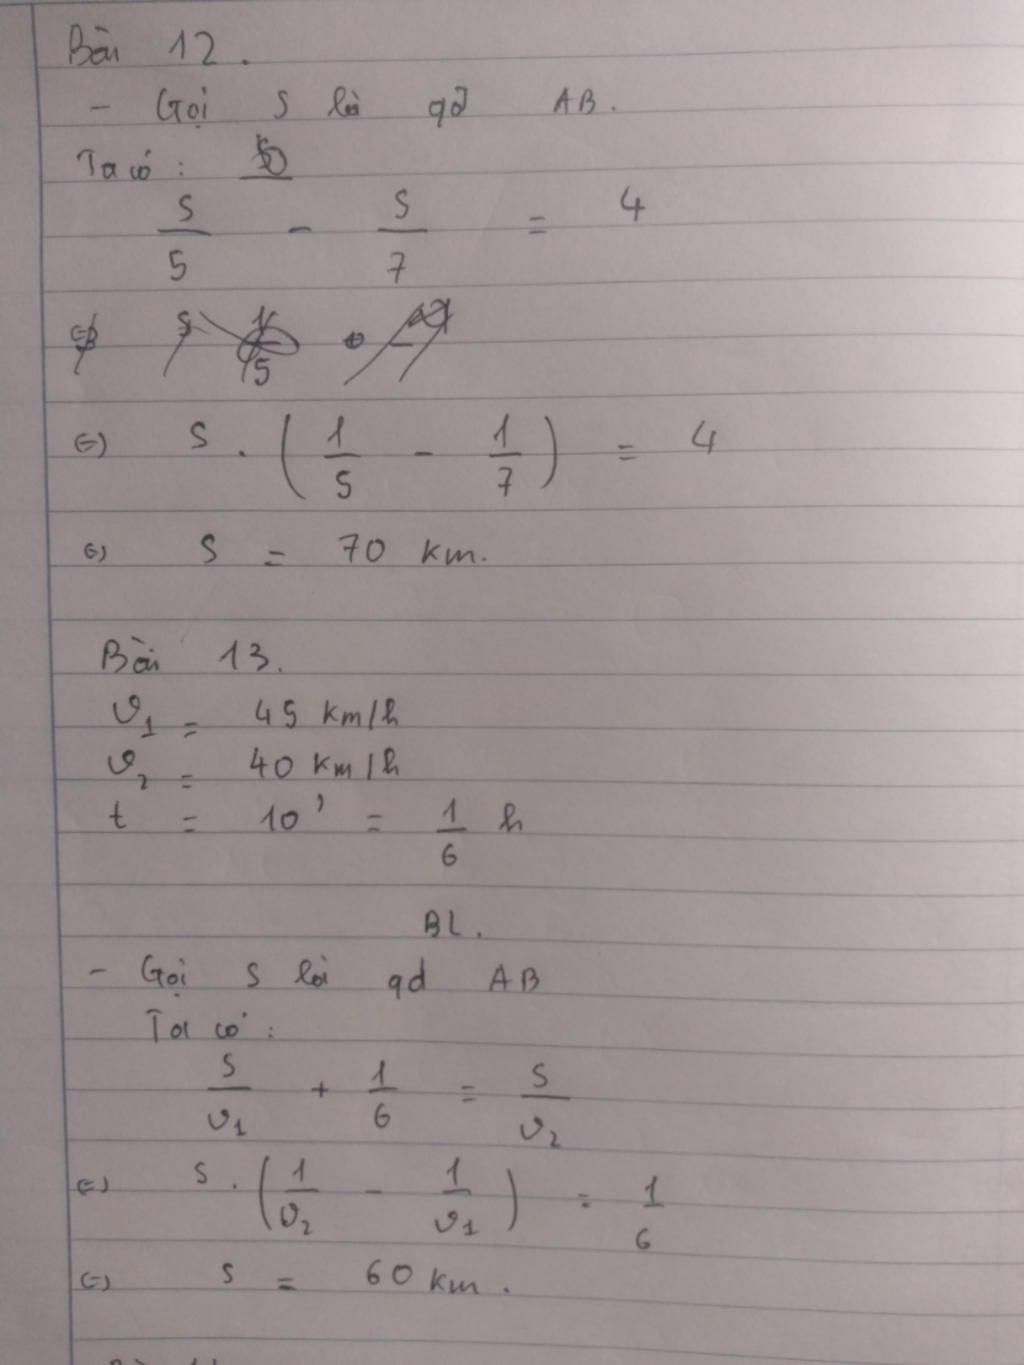 Bài 12.
- Gọi S là qđ AB.
Ta có:
S/5 - S/7 = 4
(=) S . (1/5 - 1/7) = 4
(=) S = 70 km.
Bài 13.
v₁ = 45 km/h
v₂ = 40 km/h
t = 10' = 1/6 h
BL.
- Gọi S là qđ AB
Ta có:
S/v₁ + 1/6 = S/v₂
(=) S . (1/v₂ - 1/v₁) = 1/6
(=) S = 60 km.